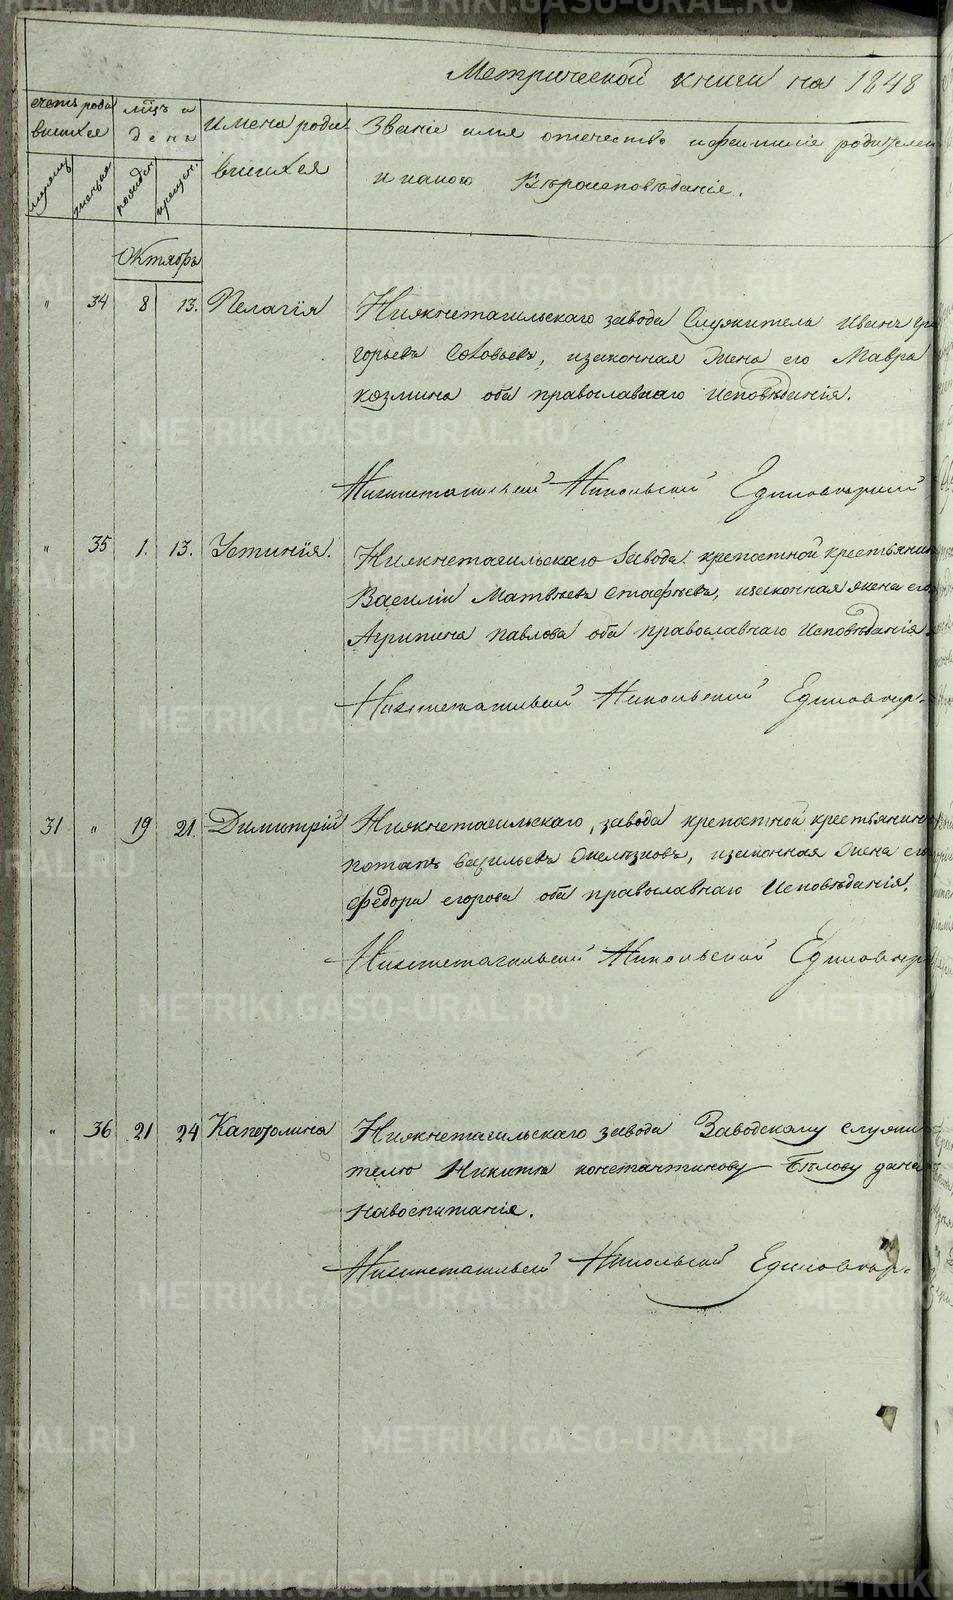 Метрической книги на 1848
счетъ роди
вшихся
мѣсяцъ и
день
имена роди
вшихся
Званіе имя отечество и фамиліе родителей
и какого Вѣроисповѣданія.
мужеск
женска
рожден
крещен.
Октябрь
" 34 8 13. Пелагія
Нижнетагильскаго завода Служитель Иванъ Гри
горьевъ Соловьевъ, изаконная жена его Мавра
козмина оба православнаго Исповѣданія.
Нижнетагильской Никольской Единоверческий
" 35 1. 13. Устинія.
Нижнетагильскаго Завода крепостной крестьянинъ
Василій Матвѣевъ Стафѣевъ, изаконная жена его
Агрипина Павлова оба православнаго Исповѣданія.
Нижнетагильской Никольской Единовер.
31 " 19 21. Димитрій
Нижнетагильскаго, завода крепостной крестьянинъ
потапъ Васильевъ Желѣзковъ, изаконная жена его
федора егорова оба православнаго Исповѣданія.
Нижнетагильской Никольской Единовер
" 36 21 24 Капетолина
Нижнетагильскаго завода Заводскому служи
телю Никитѣ константинову Бѣлову дана
навоспитаніе.
Нижнетагильской Никольской Единовер.
METRIKI.GASO-URAL.RU